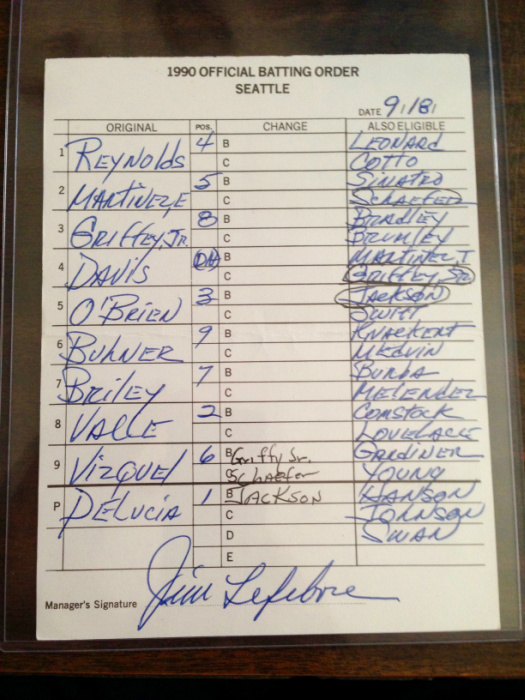 1990 OFFICIAL BATTING ORDER
SEATTLE
DATE 9/18/
ORIGINAL POS. CHANGE ALSO ELIGIBLE
1 REYNOLDS 4 B LEONARD
C COTTO
2 MARTINEZ, E 5 B SINATRO
C SCHAEFER
3 GRIFFEY, JR 8 B BRADLEY
C BRUMLEY
4 DAVIS DH B MARTINEZ, T
C GRIFFEY, SR
5 O'BRIEN 3 B JACKSON
C SWIFT
6 BUHNER 9 B KNACKERT
C MELVIN
7 BRILEY 7 B BURBA
C MELENDEZ
8 VALLE 2 B COMSTOCK
C LOVELACE
9 VIZQUEL 6 B Griffy Sr. GARDINER
C Schaefer YOUNG
P DELUCIA 1 B JACKSON HANSON
C JOHNSON
D SWAN
E
Manager's Signature Jim Lefebvre